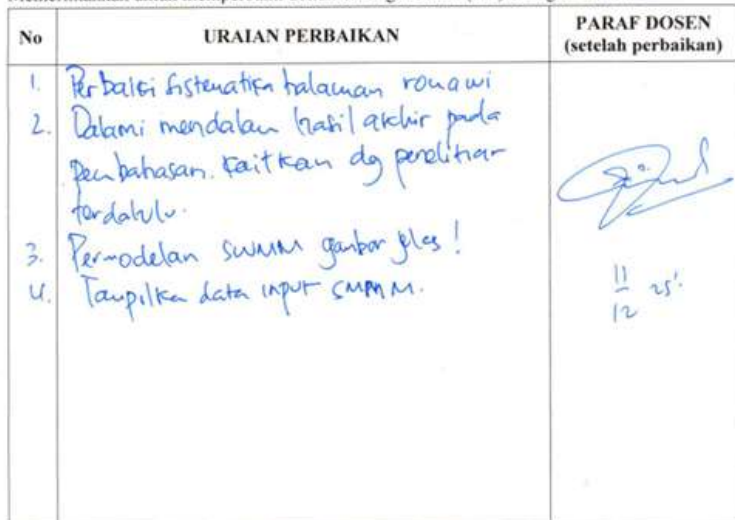 No URAIAN PERBAIKAN PARAF DOSEN
(setelah perbaikan)
1. Perbaiki Sistematika halaman romawi
2. Dalami mendalam hasil akhir pada
pembahasan. kaitkan dg penelitian
terdahulu.
3. Permodelan SWMM gambar jelas!
4. Tampilkan data input SWMM.
11
12 25'.